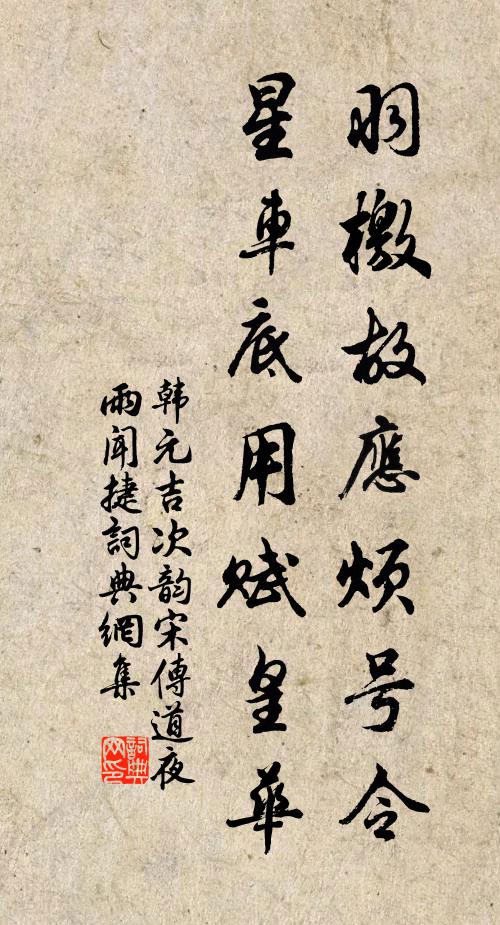 羽檄故應烦号令
星車底用赋皇華
韩元吉次韵宋傳道夜
雨闻捷詞典網集
詞典
网印